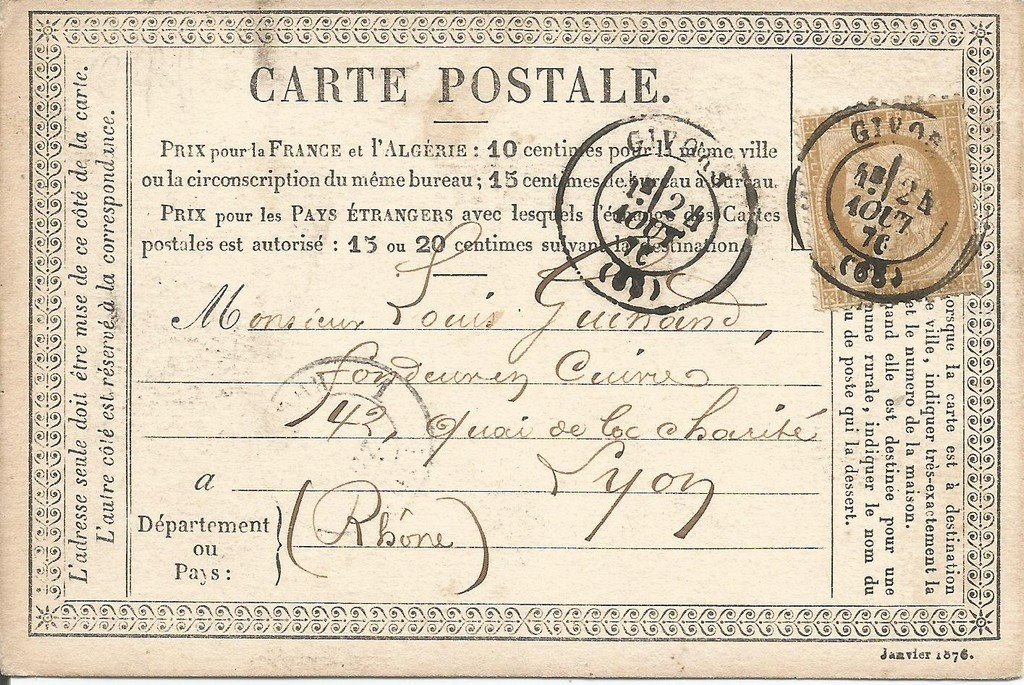 CARTE POSTALE.
PRIX pour la FRANCE et l'ALGÉRIE : 10 centimes pour la même ville
ou la circonscription du même bureau ; 15 centimes de bureau à bureau.
PRIX pour les PAYS ÉTRANGERS avec lesquels l'échange des Cartes
postales est autorisé : 15 ou 20 centimes suivant la destination.
L'adresse seule doit être mise de ce côté de la carte.
L'autre côté est réservé à la correspondance.
GIVORS
1E/24
AOUT
76
(68)
GIVORS
1E/24
AOUT
76
(68)
Monsieur Louis Guichard,
fondeur en Cuivre
42, Quai de la Charité
a Lyon
Département
ou
Pays :
(Rhône)
Lorsque la carte est à destination
de ville, indiquer très-exactement la
et le numero de la maison.
Quand elle est destinée pour une
commune rurale, indiquer le nom du
bureau de poste qui la dessert.
Janvier 1876.